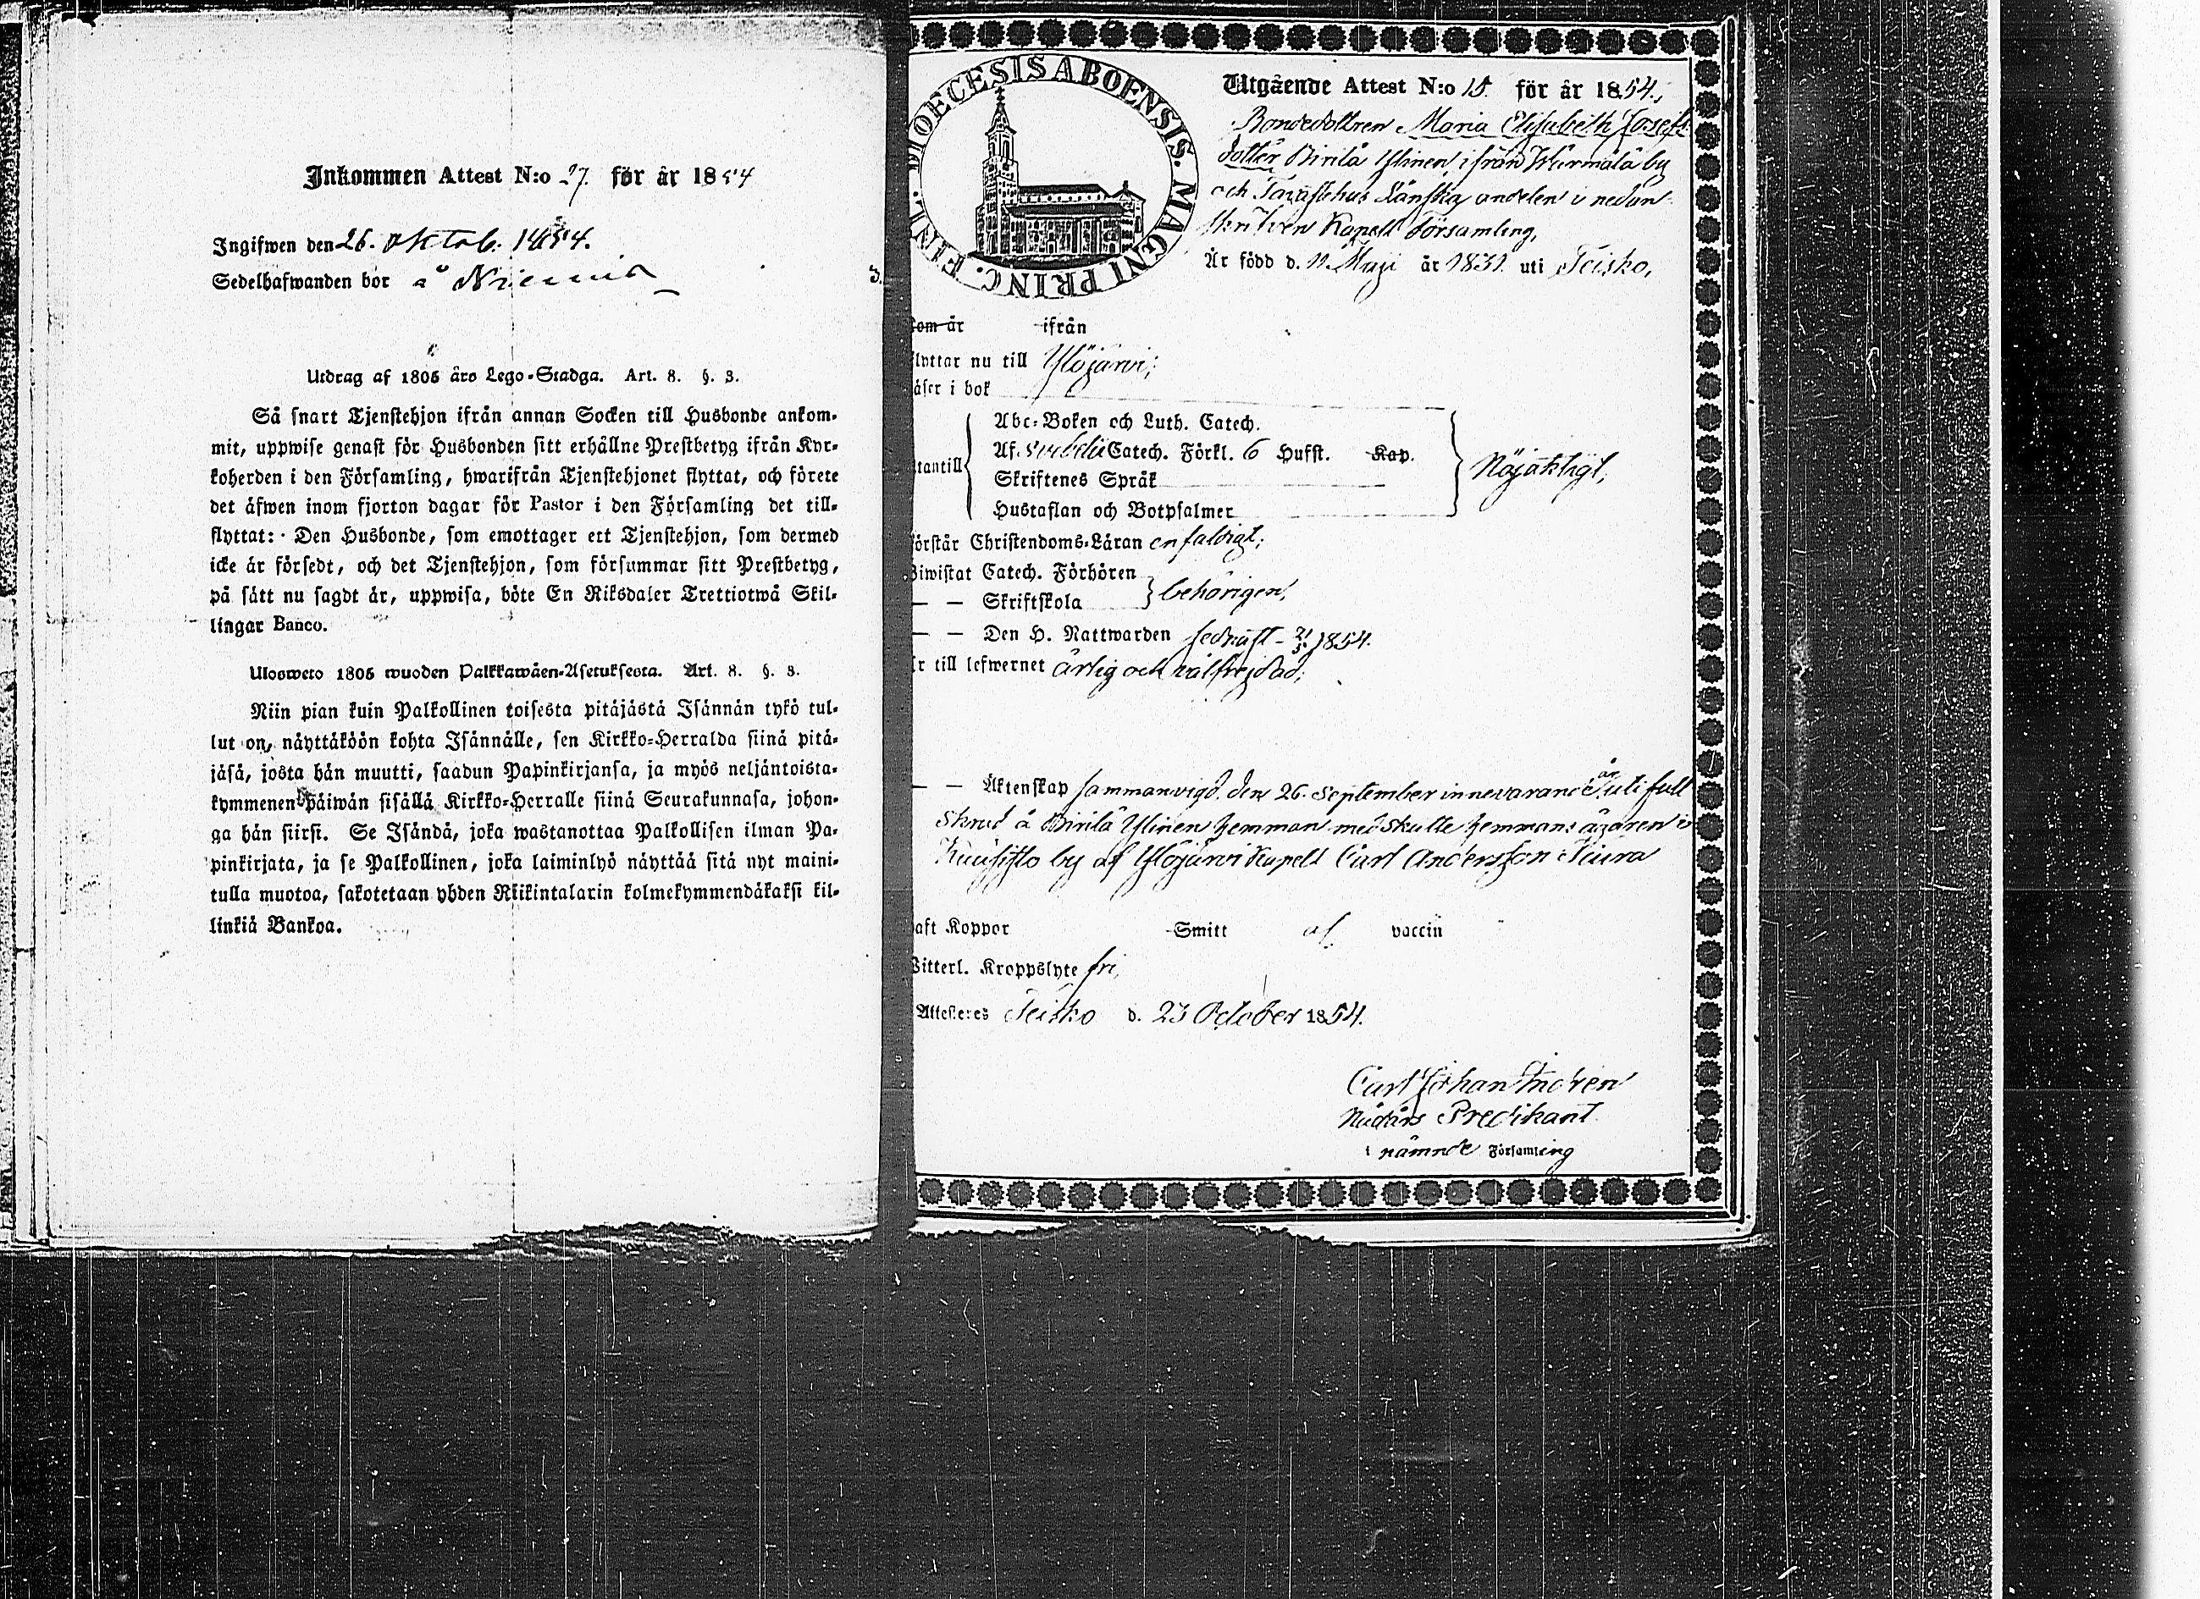 Inkommen Attest N:o 27. för år 1854
Ingifwen den 26. oktob. 1854.
Sedelhafwanden bor å Niemis
Utdrag af 1805 års Lego-Stadga. Art. 8. §. 3.
Så snart Tjenstehjon ifrån annan Socken till Husbonde ankom-
mit, uppwise genast för Husbonden sitt erhållne Prestbetyg ifrån Kyr-
koherden i den Församling, hwarifrån Tjenstehjonet flyttat, och förete
det äfwen inom fjorton dagar för Pastor i den Församling det till-
flyttat: Den Husbonde, som emottager ett Tjenstehjon, som dermed
icke är försedt, och det Tjenstehjon, som försummar sitt Prestbetyg,
på sätt nu sagdt är, uppwisa, böte En Riksdaler Trettiotwå Skil-
lingar Banco.
Ulosweto 1805 wuoden Palkkawäen-Asetuksesta. Art. 8. §. 3.
Niin pian kuin Palkollinen toisesta pitäjästä Isännän tykö tul-
lut on, näyttäköön kohta Isännälle, sen Kirkko-Herralda siinä pitä-
jäsä, josta hän muutti, saadun Papinkirjansa, ja myös neljäntoista-
kymmenen päiwän sisällä Kirkko-Herralle siinä Seurakunnasa, johon-
ga hän siirsi. Se Isändä, joka wastanottaa Palkollisen ilman Pa-
pinkirjata, ja se Palkollinen, joka laiminlyö näyttää sitä nyt maini-
tulla muotoa, sakotetaan yhden Riikintalarin kolmekymmendäkaksi kil-
linkiä Bankoa.
DIOECESIS ABOENSIS. MAGNI PRINC. FINL.
Utgående Attest N:o 15. för år 1854.
Bondedottren Maria Elisabeth Josefs
dotter Pirilä Ylinen, ifrån Wärmälä by
och Tavastehus Länska andelen i nedan-
skrifven Kapell Församling,
Är född d. 11 Maji år 1831. uti Teisko,
som är ifrån
flyttar nu till Ylöjärvi;
läser i bok
Abc-Boken och Luth. Catech.
utantill Af Svebelii Catech. Förkl. 6 Hufst. Kap. Nöjaktligt;
Skriftenes Språk
Hustaflan och Botpsalmer
förstår Christendoms-Läran enfaldigt;
Biwistat Catech. Förhören
— — Skriftskola behörigen,
— — Den H. Nattwarden sednast 21/5 1854.
Är till lefwernet ärlig och välfrejdad;
— — Äktenskap sammanvigd den 26. September innevarande år uti full
skrud å Pirilä Ylinen hemman med Skatte hemmans ägaren i
Kuusisto by af Ylöjärvi Kapell Carl Andersson Teura
haft Koppor Smitt af vaccin
Witterl. Kroppslyte fri,
Attesteres Teisko d. 23 October 1854.
Carl Johan Indrén
Nådårs Predikant
i nämnde Församling